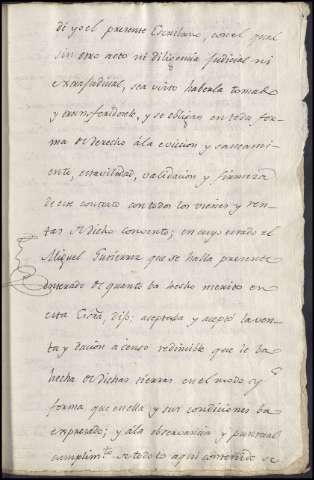 di yo el presente Escribano, con el qual
sin otro acto ni diligencia Judicial ni
extrajudicial, sea visto haberla tomado
y transferidosele, y se obligan en toda for-
ma de derecho á la eviccion y saneami-
ento, estavilidad, validacion y firmeza
de este contrato con todos los vienes y ren-
tas de dicho convento; en cuyo estado el
Miguel Gutierrez que se halla presente
enterado de quanto ba hecho merito en
esta Escrâ, dijo: aceptaba y aceptó la ven-
ta y dacion a censo redimible que le ba
hecha de dichas tierras en el modo y
forma que en ella y sus condiciones ba
expresado; y á la observancia y puntual
cumplimto de todo lo aqui contenido se